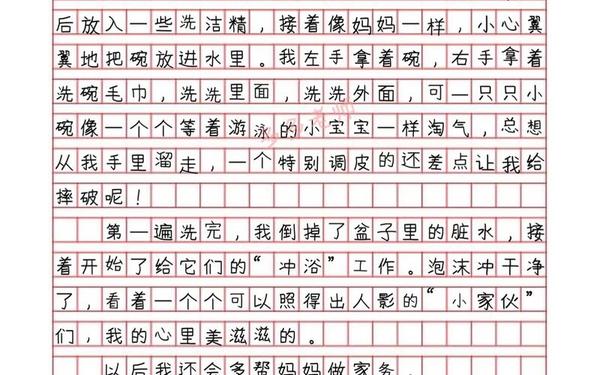 后放入一些洗洁精，接着像妈妈一样，小心翼
翼地把碗放进水里。我左手拿着碗，右手拿着
洗碗毛巾，洗洗里面，洗洗外面，可一只只小
碗像一个个等着游泳的小宝宝一样淘气，总想
从我手里溜走，一个特别调皮的还差点让我给
摔破呢！
第一遍洗完，我倒掉了盆子里的脏水，接
着开始了给它们的“冲浴”工作。泡沫冲干净
了，看着一个个可以照得出人影的“小家伙”
们，我的心里美滋滋的。
以后我还会多帮妈妈做家务。